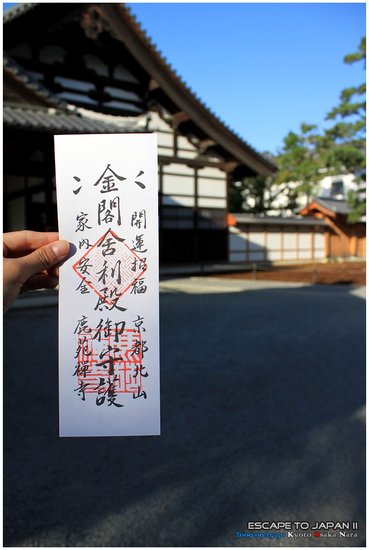 開運招福 京都北山
金閣舎利殿御守護
家内安全 鹿苑禅寺
ESCAPE TO JAPAN II
Kyoto Osaka Nara